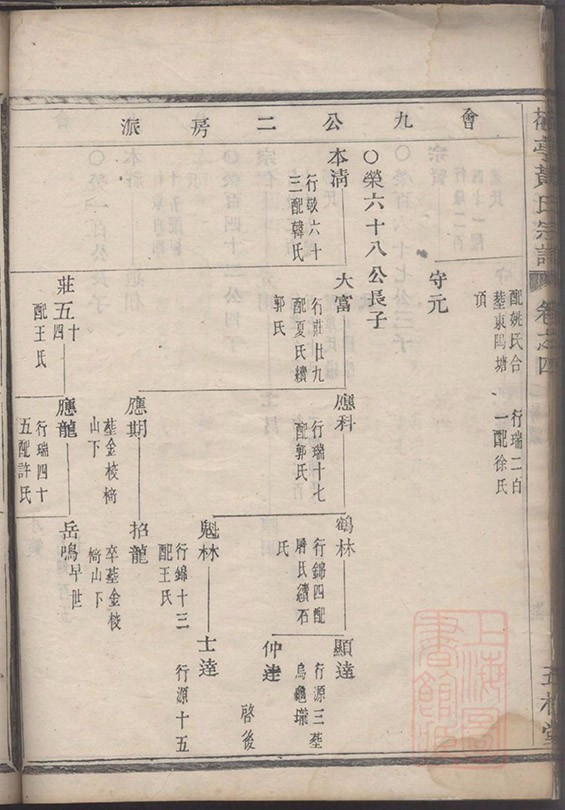 會九公二房派
配姚氏合
葬東鳴塘
頂
行瑞二百
一配徐氏
守元
〇榮六十八公長子
本清
行敬六十
三配韓氏
大富
行莊廿九
配夏氏續
郭氏
應科
行瑞十七
配郭氏
鶴林
行錦四配
屠氏續石
氏
顯達
行源三葬
烏龜壠
仲達
啓後
魁林
行錦十三
配王氏
士達
行源十五
應期
葬金梭
山下
招龍
卒葬金梭
山下
莊五十四
配王氏
應龍
行瑞四十
五配許氏
岳鳴
早世
黃氏宗譜
卷之四
上海圖書館藏